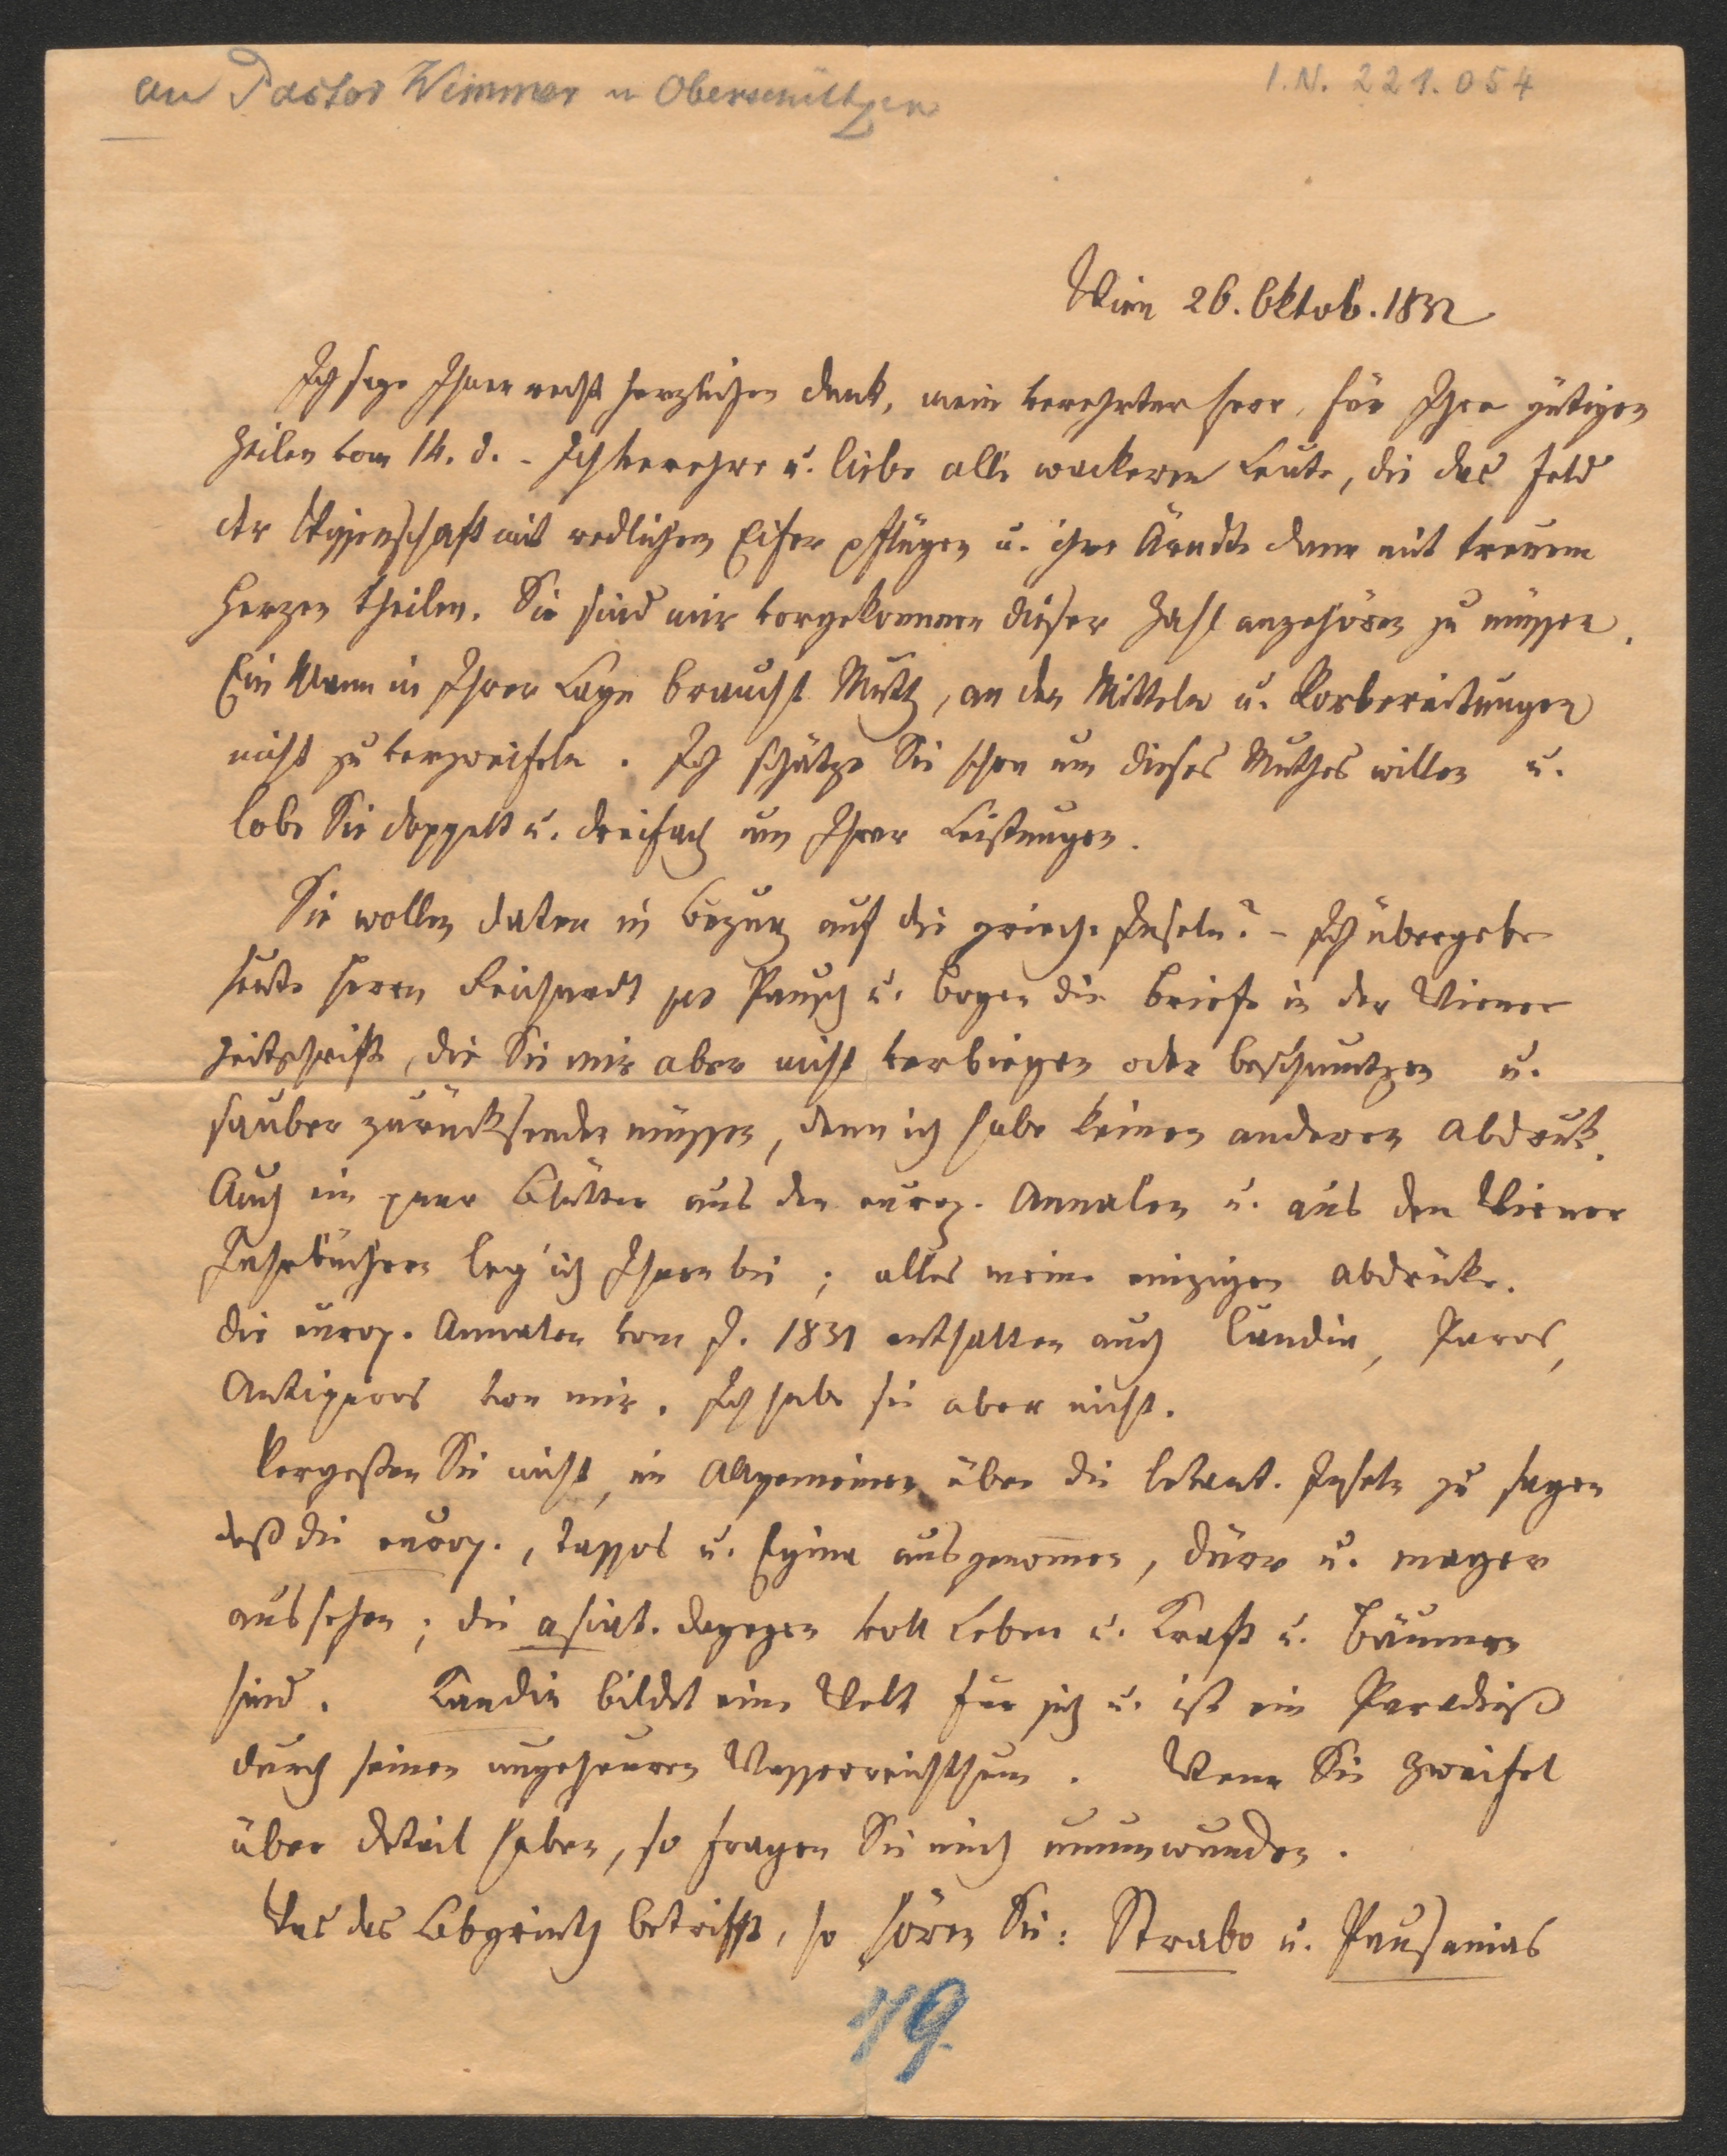 an Pastor Wimmer in Oberschützen
I.N. 221.054
Wien 26. Oktob. 1832
Ich sage Ihnen recht herzlichen Dank, mein verehrter Herr, für Ihre gütigen
Zeilen vom 14. d. - Ich verehre u. liebe alle wackeren Leute, die das Feld
der Wissenschaft mit redlichem Eifer pflügen u. ihre Ärndte dann mit treuem
Herzen theilen. Sie sind mir vorgekommen dieser Zahl angehören zu müssen.
Ein Mann in Ihrer Lage braucht Muth, an den Mitteln u. Vorbereitungen
nicht zu verzweifeln. Ich schätze Sie schon um dieses Muthes willen u.
lobe Sie doppelt u. dreifach um Ihrer Leistungen.
Sie wollen Daten in Bezug auf die griech. Inseln? - Ich übergebe
heute Herrn Leichardt pr Pausch u. Bogen die Briefe in der Wiener
Zeitschrift, die Sie mir aber nicht verbiegen oder beschmutzen u.
sauber zurücksenden müssen, denn ich habe keinen anderen Abdruk.
Auch ein paar Blätter aus den europ. Annalen u. aus den Wiener
Jahrbüchern leg' ich Ihnen bei; alles meine einzigen Abdrüke.
Die europ. Annalen vom J. 1831 enthalten auch Candia, Paros,
Antiparos von mir. Ich habe sie aber nicht.
Vergeßen Sie nicht, im Allgemeinen über die levant. Inseln zu sagen
daß die europ., Tassos u. Egina ausgenommen, dürr u. mager
aussehen; die asiat. dagegen voll Leben u. Kraft u. Bäumen
sind. Candia bildet eine Welt für sich u. ist ein Paradieß
durch seinen ungeheuren Wasserreichthum. Wenn Sie Zweifel
über Detail haben, so fragen Sie mich unumwunden.
Was das Labyrinth betrifft, so hören Sie: Strabo u. Pausanias
79.